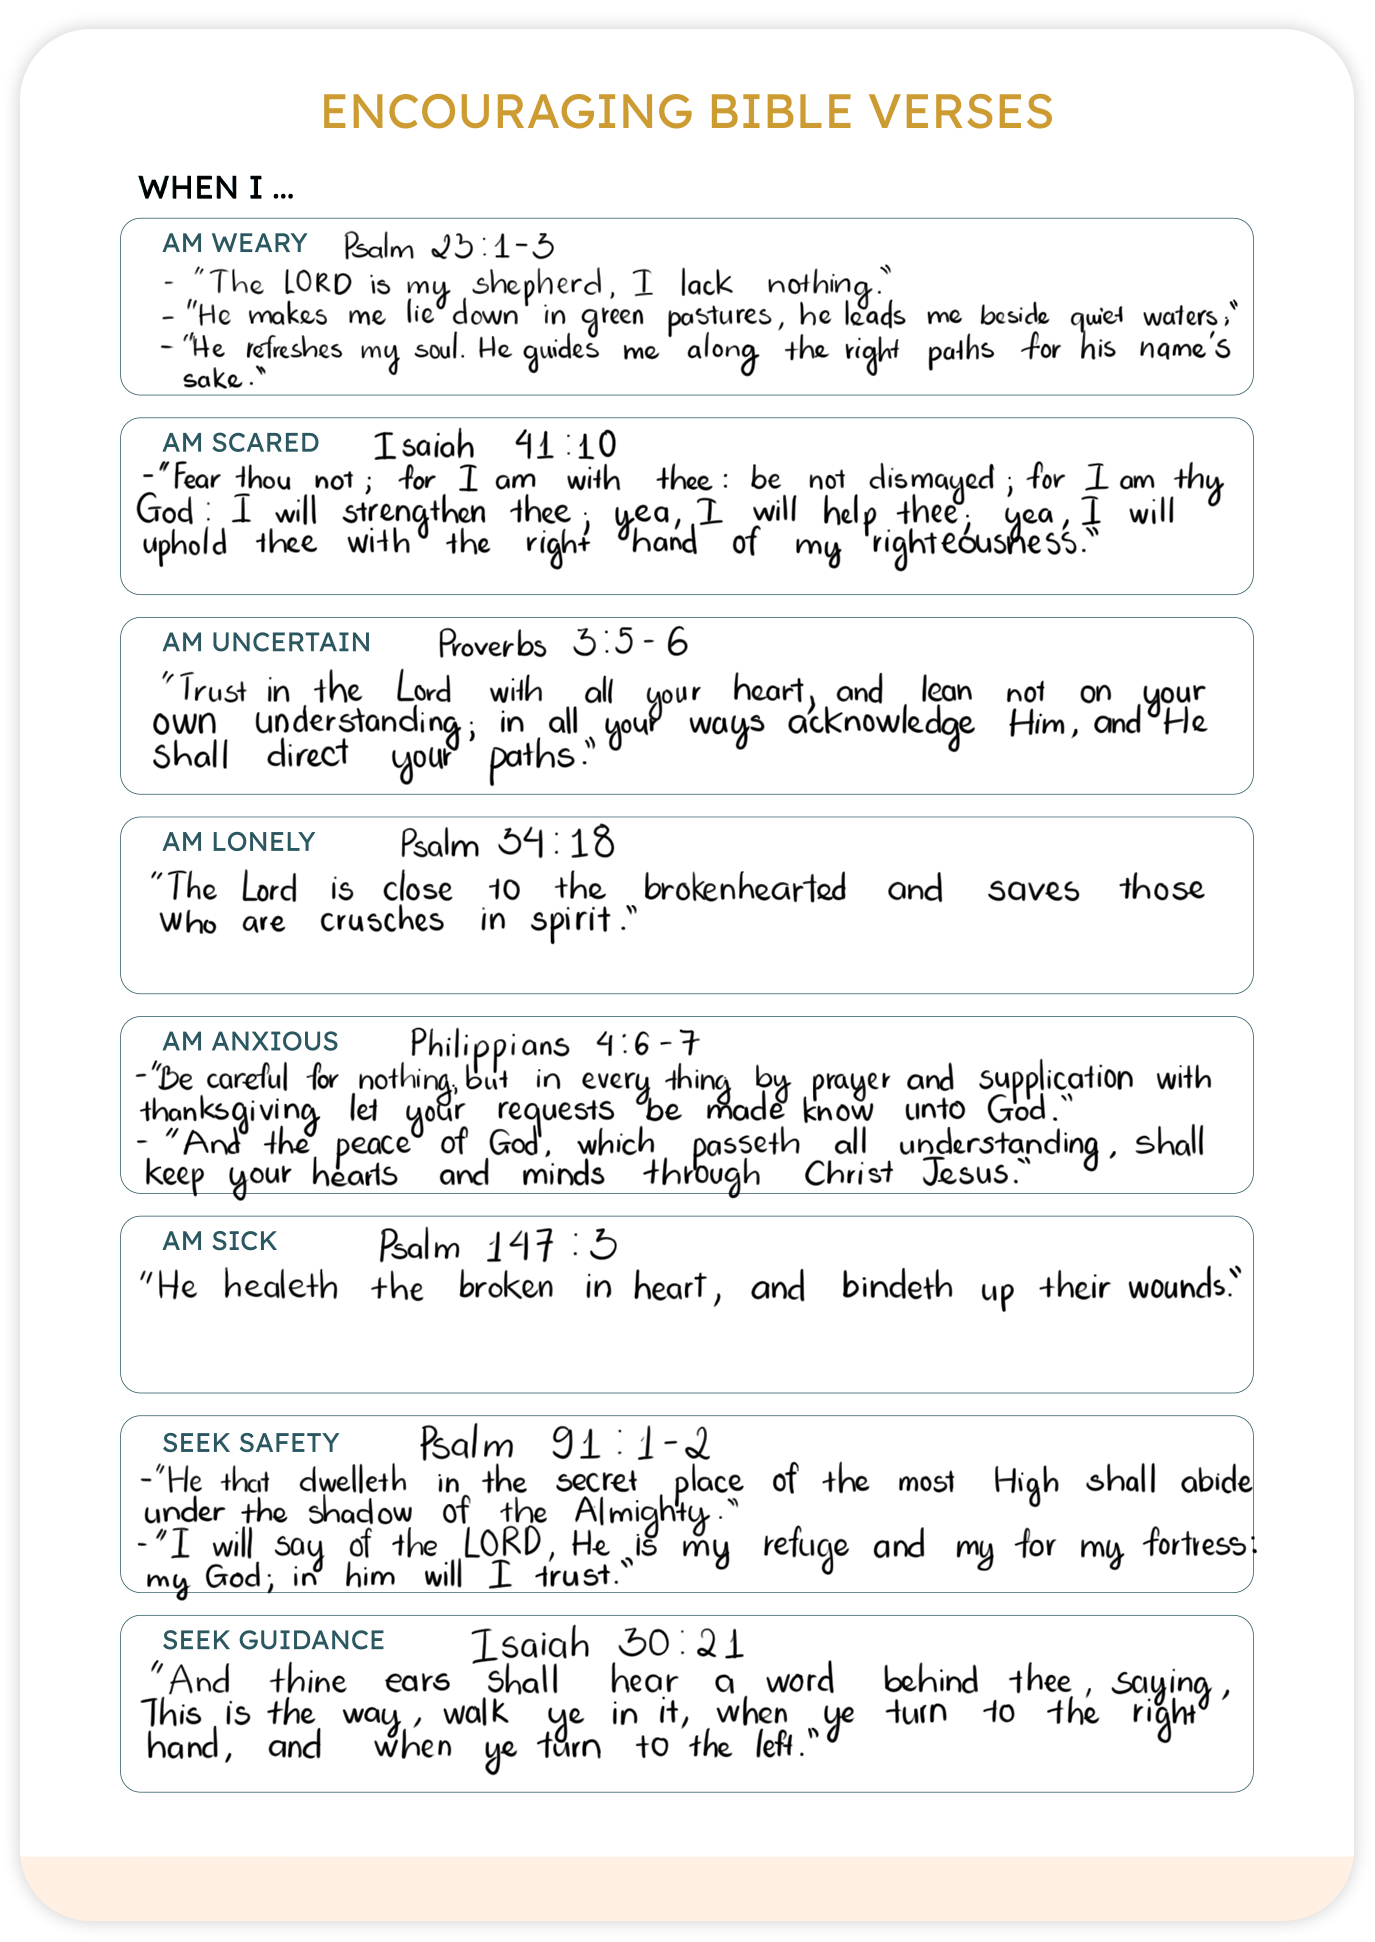 ENCOURAGING BIBLE VERSES
WHEN I ...
AM WEARY Psalm 23:1-3
- "The LORD is my shepherd, I lack nothing."
- "He makes me lie down in green pastures, he leads me beside quiet waters;"
- "He refreshes my soul. He guides me along the right paths for his name's
sake."
AM SCARED Isaiah 41:10
-"Fear thou not; for I am with thee: be not dismayed; for I am thy
God: I will strengthen thee; yea, I will help thee; yea, I will
uphold thee with the right hand of my righteousness."
AM UNCERTAIN Proverbs 3:5-6
"Trust in the Lord with all your heart, and lean not on your
own understanding; in all your ways acknowledge Him, and He
Shall direct your paths."
AM LONELY Psalm 34:18
"The Lord is close to the brokenhearted and saves those
who are crusches in spirit."
AM ANXIOUS Philippians 4:6-7
-"Be careful for nothing; but in every thing by prayer and supplication with
thanksgiving let your requests be made know unto God."
- "And the peace of God, which passeth all understanding, shall
keep your hearts and minds through Christ Jesus."
AM SICK Psalm 147:3
"He healeth the broken in heart, and bindeth up their wounds."
SEEK SAFETY Psalm 91:1-2
-"He that dwelleth in the secret place of the most High shall abide
under the shadow of the Almighty."
-"I will say of the LORD, He is my refuge and my for my fortress:
my God; in him will I trust."
SEEK GUIDANCE Isaiah 30:21
"And thine ears shall hear a word behind thee, saying,
This is the way, walk ye in it, when ye turn to the right
hand, and when ye turn to the left."